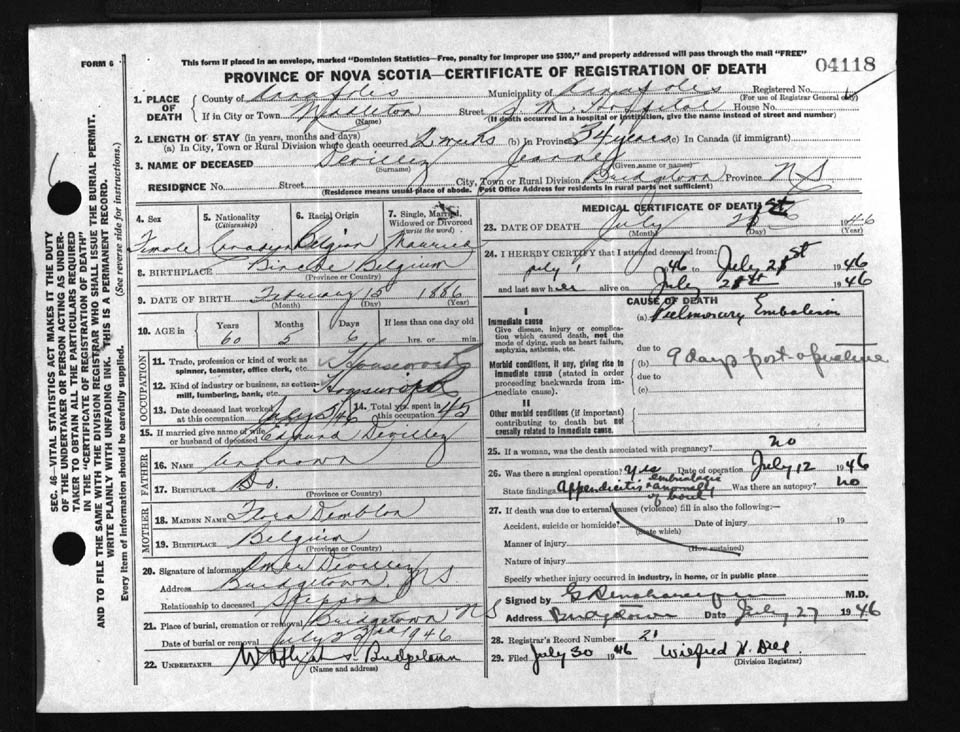 FORM 6
This form if placed in an envelope, marked "Dominion Statistics—Free, penalty for improper use $300," and properly addressed will pass through the mail "FREE"
PROVINCE OF NOVA SCOTIA—CERTIFICATE OF REGISTRATION OF DEATH
04118
SEC. 46—VITAL STATISTICS ACT MAKES IT THE DUTY
OF THE UNDERTAKER OR PERSON ACTING AS UNDER-
TAKER TO OBTAIN ALL THE PARTICULARS REQUIRED
IN THE "CERTIFICATE OF REGISTRATION OF DEATH"
AND TO FILE THE SAME WITH THE DIVISION REGISTRAR WHO SHALL ISSUE THE BURIAL PERMIT.
WRITE PLAINLY WITH UNFADING INK. THIS IS A PERMANENT RECORD.
Every item of information should be carefully supplied. (See reverse side for instructions.)
1. PLACE OF DEATH
County of Annapolis Municipality of Annapolis Registered No.
(For use of Registrar General only)
If in City or Town Middleton Street S. M. Hospital House No.
(Name) (If death occurred in a hospital or institution, give the name instead of street and number)
2. LENGTH OF STAY (in years, months and days)
(a) In City, Town or Rural Division where death occurred 2 weeks (b) In Province 34 years (c) In Canada (if immigrant)
3. NAME OF DECEASED Devillez Jeanne
(Surname) (Given name or names)
RESIDENCE No. Street City, Town or Rural Division Bridgetown Province NS
(Residence means usual place of abode. Post Office Address for residents in rural parts not sufficient)
4. Sex Female
5. Nationality (Citizenship) Canadian
6. Racial Origin Belgian
7. Single, Married, Widowed or Divorced (write the word) Married
8. BIRTHPLACE Binche Belgium
(Province or Country)
9. DATE OF BIRTH February 15 1886
(Month) (Day) (Year)
10. AGE in Years Months Days If less than one day old
60 5 6 hrs. or min.
OCCUPATION
11. Trade, profession or kind of work as spinner, teamster, office clerk, etc. Housework
12. Kind of industry or business, as cotton mill, lumbering, bank, etc.
13. Date deceased last worked at this occupation July 3/46 14. Total yrs. spent in this occupation 45
15. If married give name of wife or husband of deceased Edmund Devillez
FATHER
16. NAME Unknown
17. BIRTHPLACE Do.
(Province or Country)
MOTHER
18. MAIDEN NAME Flora Demblon
19. BIRTHPLACE Belgium
(Province or Country)
20. Signature of informant Omer Devillez
Address Bridgetown NS
Relationship to deceased Stepson
21. Place of burial, cremation or removal Bridgetown NS
Date of burial or removal July 23rd 1946
22. UNDERTAKER Bridgetown
(Name and address)
MEDICAL CERTIFICATE OF DEATH
23. DATE OF DEATH July 21st 1946
(Month) (Day) (Year)
24. I HEREBY CERTIFY that I attended deceased from:
July 1 1946 to July 21st 1946
and last saw her alive on July 21st 1946
CAUSE OF DEATH
I
Immediate cause
Give disease, injury or complication which caused death, not the mode of dying, such as heart failure, asphyxia, asthenia, etc.
(a) Pulmonary Embolism
due to
Morbid conditions, if any, giving rise to immediate cause (stated in order proceeding backwards from immediate cause).
(b) 9 days post-operative
due to
(c)
II
Other morbid conditions (if important) contributing to death but not causally related to immediate cause.
25. If a woman, was the death associated with pregnancy? no
26. Was there a surgical operation? Yes Date of operation July 12 1946
State findings Appendicitis & embriologic anomally of bowel Was there an autopsy? no
27. If death was due to external causes (violence) fill in also the following:—
Accident, suicide or homicide? Date of injury 19
(State which)
Manner of injury
(How sustained)
Nature of injury
Specify whether injury occurred in industry, in home, or in public place
Signed by M.D.
Address Bridgetown Date July 27 1946
28. Registrar's Record Number 21
29. Filed July 30 1946 Wilfred H.
(Division Registrar)